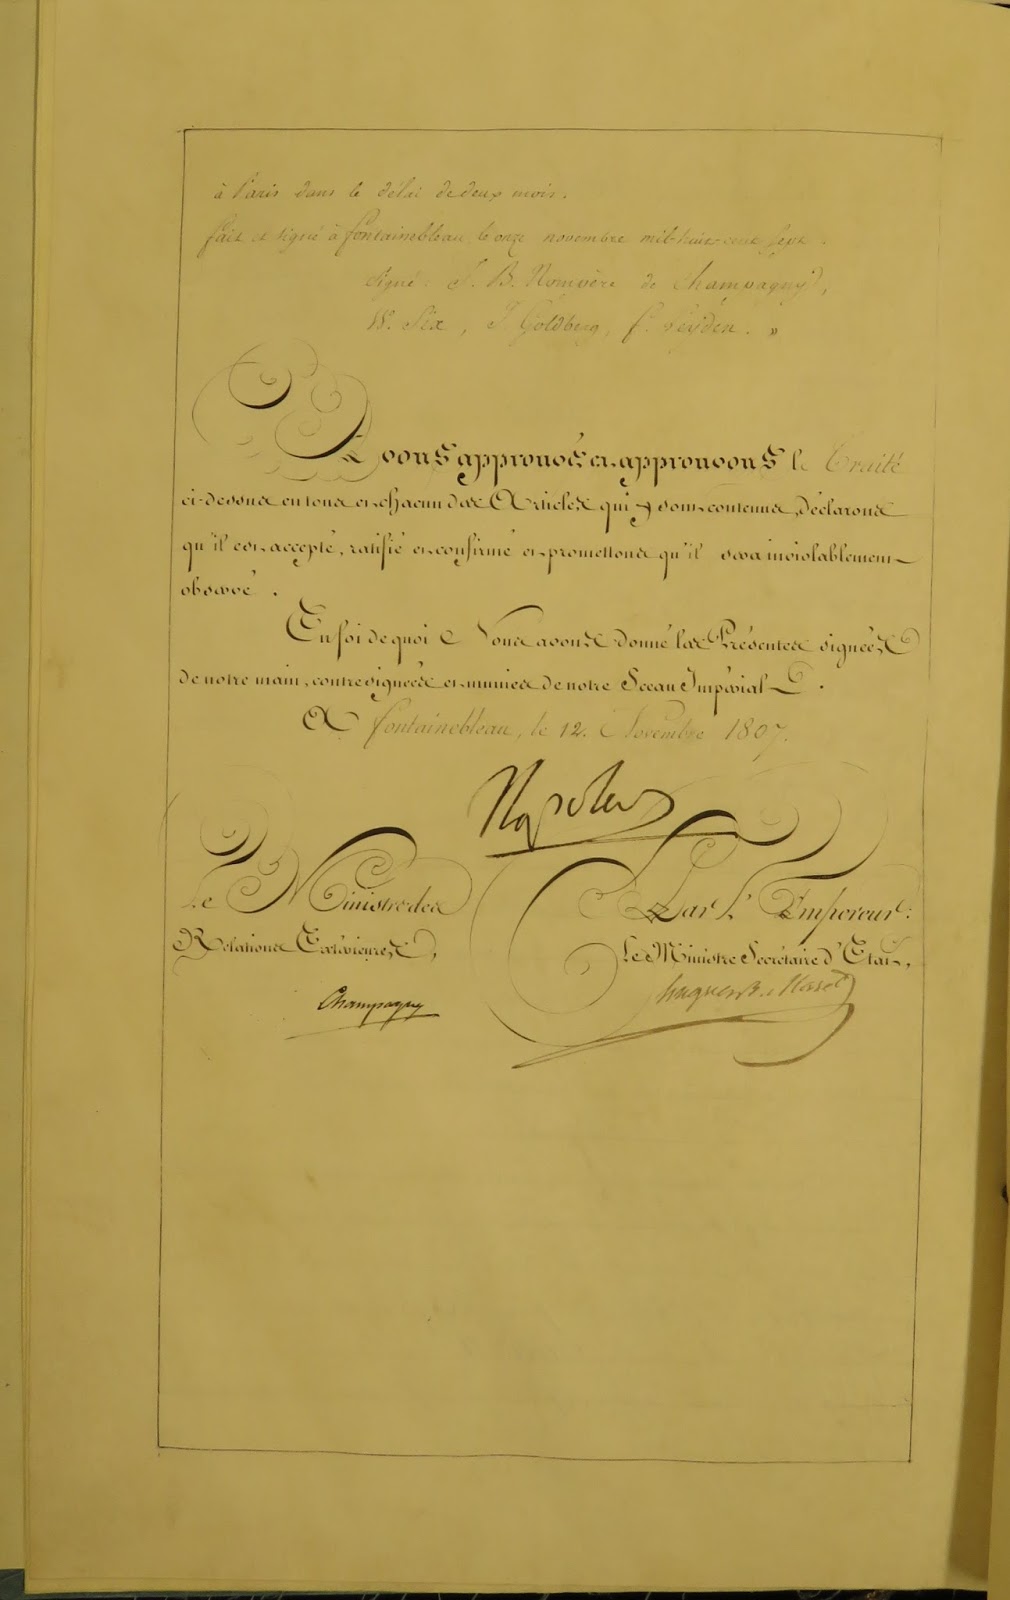 à Paris dans le délai de deux mois.
fait et signé à fontainebleau, le onze novembre mil-huit-cent sept.
signé: J. B. Nompère de Champagny,
W. Six, J. Goldberg, f. Leyden. »
Avons approuvé et approuvons le Traité
ci-dessus en tous et chacun des Articles qui y sont contenus, déclarons
qu'il est accepté, ratifié et confirmé et promettons qu'il sera inviolablement
observé.
En foi de quoi Nous avons donné les Présentes signées
de notre main, contresignées et munies de notre Sceau Impérial.
A fontainebleau, le 12. Novembre 1807.
Napoleon
Le Ministre des
Relations Extérieures,
Champagny
Par l'Empereur:
Le Ministre Secrétaire d'Etat,
hugues B. Maret